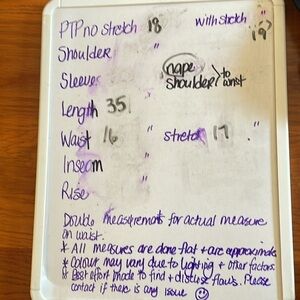 PTP no stretch 18 " with stretch 19"
Shoulder
Sleeves nape
shoulder > to wrist
Length 35 "
Waist 16 " stretch 17 "
Inseam
Rise
Double measurement for actual measure
on waist.
* All measures are done flat + are approximate
* Colour may vary due to lighting + other factors
* Best effort made to find + disclose flaws. Please
contact if there is any issue ☺